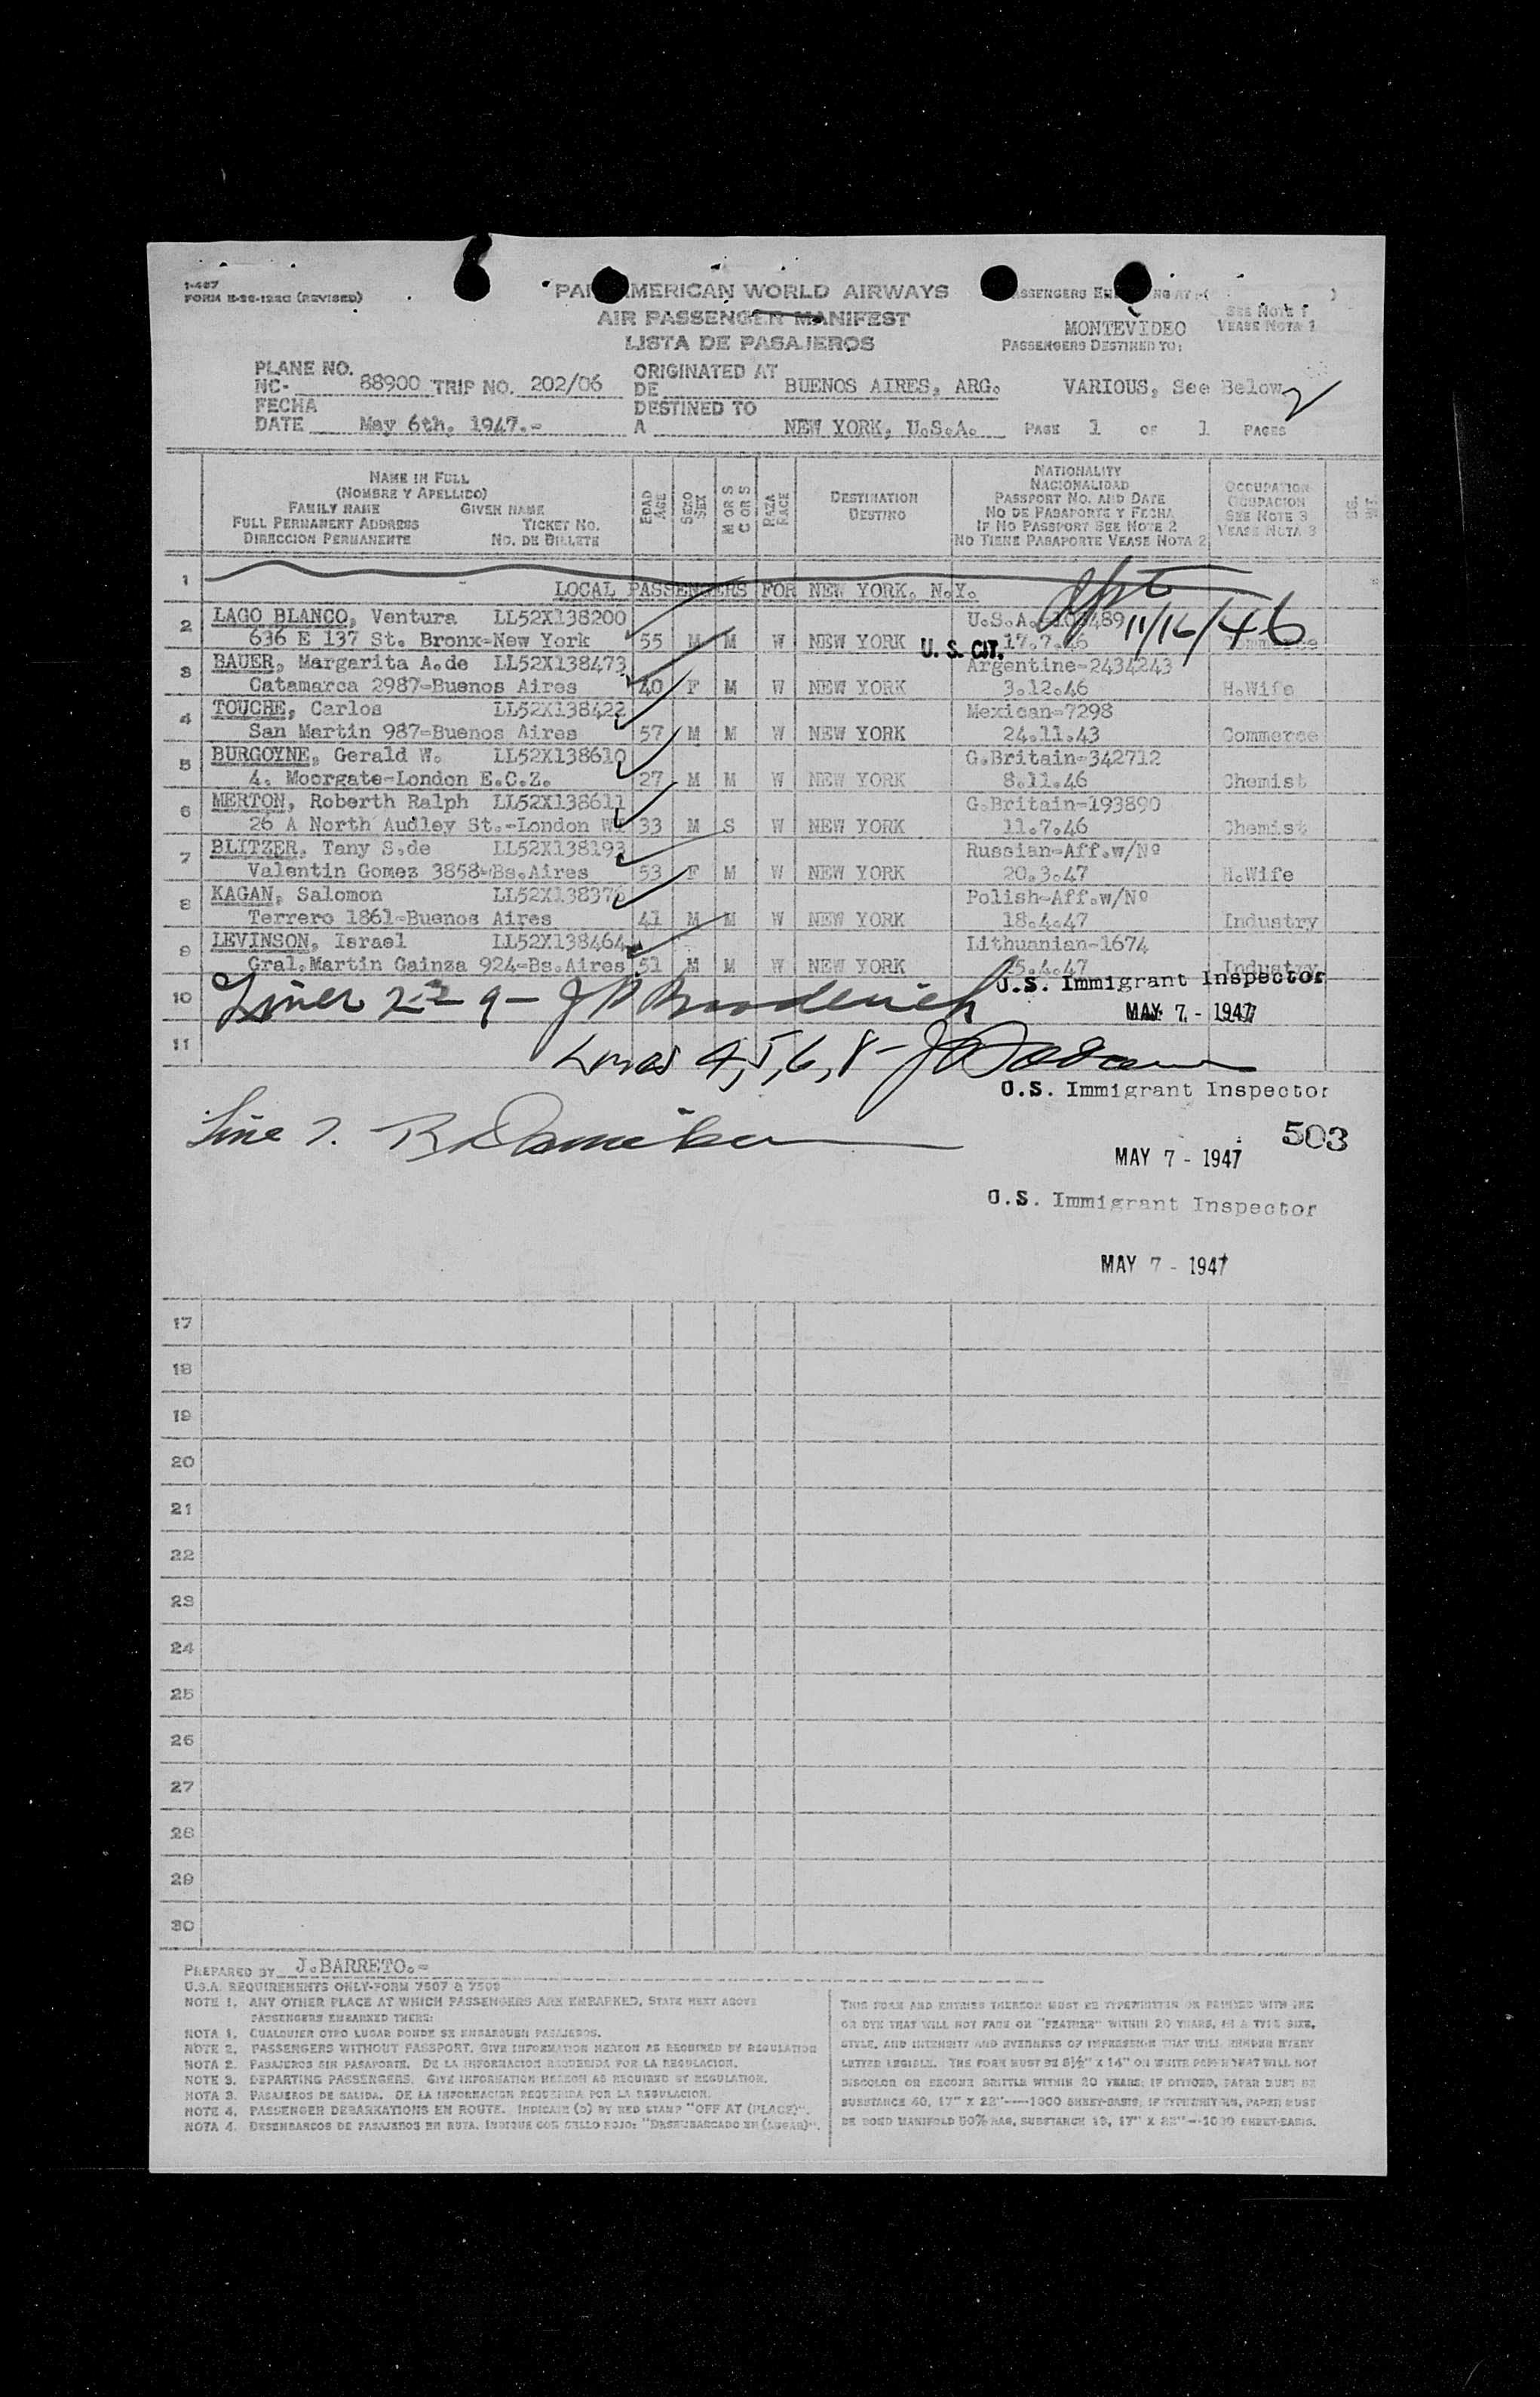 I-487
FORM E-26-122C (REVISED)
PAN AMERICAN WORLD AIRWAYS
AIR PASSENGER MANIFEST
LISTA DE PASAJEROS
SEE NOTE 1
VEASE NOTA 1
MONTEVIDEO
PASSENGERS DESTINED TO:
PLANE NO.
NC- 88900 TRIP NO. 202/06
ORIGINATED AT
DE BUENOS AIRES, ARG.
VARIOUS, See Below
FECHA
DATE May 6th, 1947.-
DESTINED TO
A NEW YORK, U.S.A.
PAGE 1 OF 1 PAGES
NAME IN FULL
(NOMBRE Y APELLIDO)
FAMILY NAME GIVEN NAME
FULL PERMANENT ADDRESS TICKET NO.
DIRECCION PERMANENTE NO. DE BILLETE
EDAD
AGE
SEXO
SEX
M OR S
C OR S
RAZA
RACE
DESTINATION
DESTINO
NATIONALITY
NACIONALIDAD
PASSPORT NO. AND DATE
NO DE PASAPORTE Y FECHA
IF NO PASSPORT SEE NOTE 2
NO TIENE PASAPORTE VEASE NOTA 2
OCCUPATION
OCUPACION
SEE NOTE 3
VEASE NOTA 3
1 LOCAL PASSENGERS FOR NEW YORK, N.Y.
2 LAGO BLANCO, Ventura LL52X138200 U.S.A.
636 E 137 St. Bronx-New York 55 M M W NEW YORK U. S. CIT. 17.7.46 Commerce
11/16/46
3 BAUER, Margarita A.de LL52X138473 Argentine-2434243
Catamarca 2987-Buenos Aires 40 F M W NEW YORK 3.12.46 H.Wife
4 TOUCHE, Carlos LL52X138422 Mexican-7298
San Martin 987-Buenos Aires 57 M M W NEW YORK 24.11.43 Commerce
5 BURGOYNE, Gerald W. LL52X138610 G.Britain-342712
4. Moorgate-London E.C.Z. 27 M M W NEW YORK 8.11.46 Chemist
6 MERTON, Roberth Ralph LL52X138611 G.Britain-193890
26 A North Audley St.-London W1 33 M S W NEW YORK 11.7.46 Chemist
7 BLITZER, Tany S.de LL52X138193 Russian-Aff.w/Nº
Valentin Gomez 3858-Bs.Aires 53 F M W NEW YORK 20.3.47 H.Wife
8 KAGAN, Salomon LL52X138376 Polish-Aff.w/Nº
Terrero 1861-Buenos Aires 41 M M W NEW YORK 18.4.47 Industry
9 LEVINSON, Israel LL52X138464 Lithuanian-1674
Gral.Martin Gainza 924-Bs.Aires 51 M M W NEW YORK 25.4.47 Industry
U.S. Immigrant Inspector
10 Lines 2-2 9 -
MAY 7 - 1947
11 Lines 4,5,6,8 -
U.S. Immigrant Inspector
Line 7.
503
MAY 7 - 1947
U.S. Immigrant Inspector
MAY 7 - 1947
17
18
19
20
21
22
23
24
25
26
27
28
29
30
PREPARED BY J.BARRETO.-
U.S.A. REQUIREMENTS ONLY-FORM 7507 & 7509
NOTE 1. ANY OTHER PLACE AT WHICH PASSENGERS ARE EMBARKED, STATE NEXT ABOVE
PASSENGERS EMBARKED THERE:
NOTA 1. CUALQUIER OTRO LUGAR DONDE SE EMBARQUEN PASAJEROS.
NOTE 2. PASSENGERS WITHOUT PASSPORT. GIVE INFORMATION HEREON AS REQUIRED BY REGULATION
NOTA 2. PASAJEROS SIN PASAPORTE. DE LA INFORMACION REQUERIDA POR LA REGULACION.
NOTE 3. DEPARTING PASSENGERS. GIVE INFORMATION HEREON AS REQUIRED BY REGULATION.
NOTA 3. PASAJEROS DE SALIDA. DE LA INFORMACION REQUERIDA POR LA REGULACION.
NOTE 4. PASSENGER DEBARKATIONS EN ROUTE. INDICATE (D) BY RED STAMP "OFF AT (PLACE)".
NOTA 4. DESEMBARCOS DE PASAJEROS EN RUTA. INDIQUE CON SELLO ROJO: "DESEMBARCADO EN (LUGAR)".
THIS FORM AND ENTRIES THEREON MUST BE TYPEWRITTEN OR PRINTED WITH INK
OR DYE THAT WILL NOT FADE OR "FEATHER" WITHIN 20 YEARS, IN A TYPE SIZE,
STYLE, AND INTENSITY AND EVENNESS OF IMPRESSION THAT WILL RENDER EVERY
LETTER LEGIBLE. THE FORM MUST BE 8½" X 14" ON WHITE PAPER THAT WILL NOT
DISCOLOR OR BECOME BRITTLE WITHIN 20 YEARS; IF DITTOED, PAPER MUST BE
SUBSTANCE 40, 17" X 22"----1000 SHEET-BASIS; IF TYPEWRITTEN, PAPER MUST
BE BOND MANIFOLD 50% RAG, SUBSTANCE 18, 17" X 22"--1000 SHEET-BASIS.